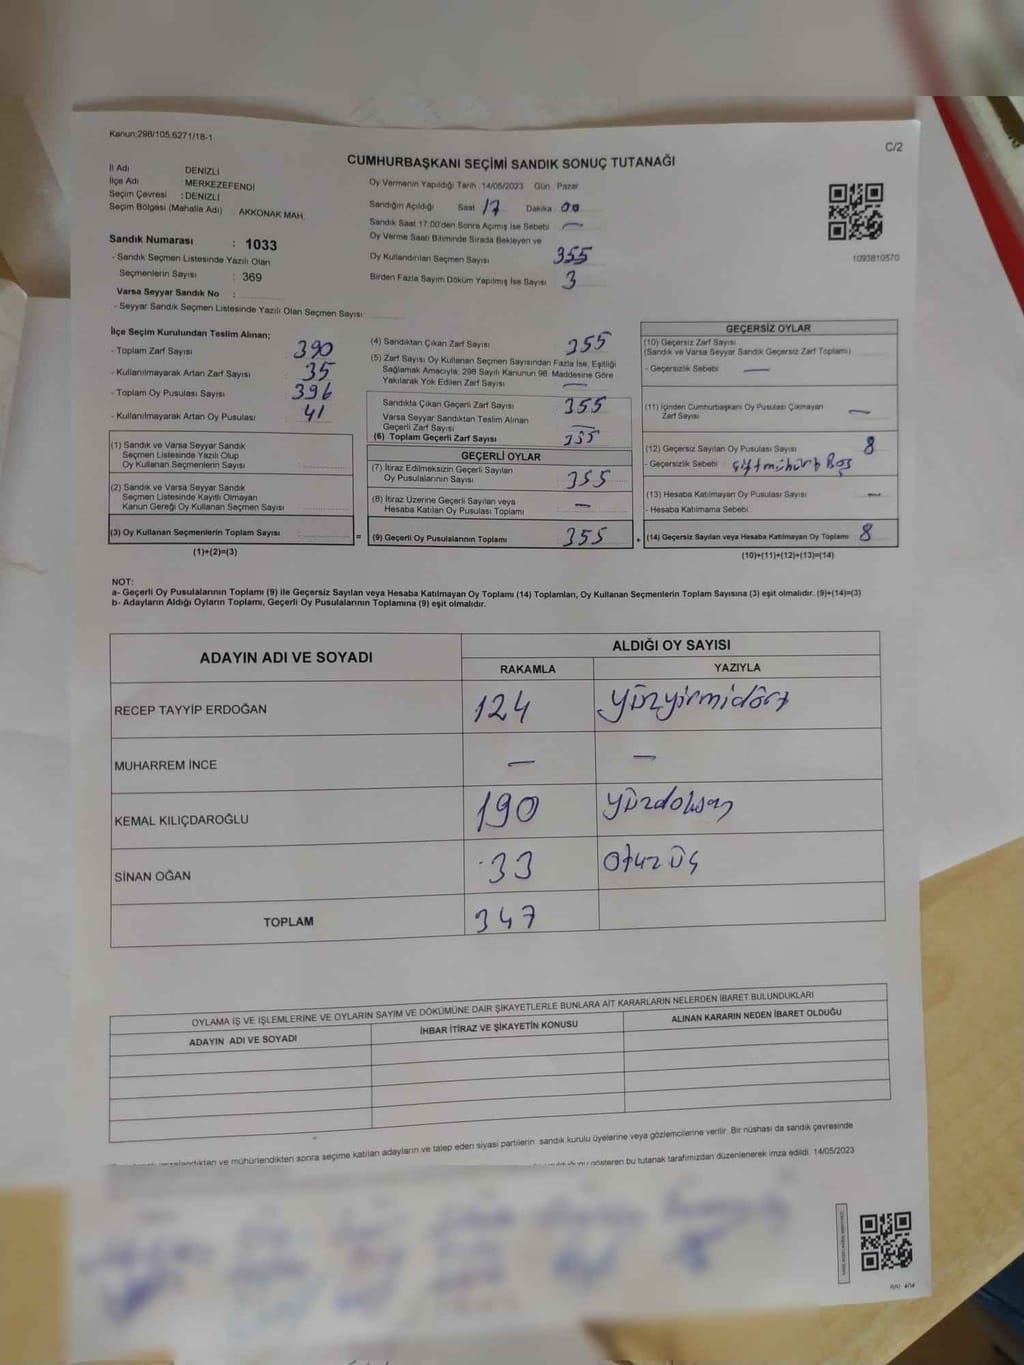 Kanun:298/105;6271/18-1
C/2
CUMHURBAŞKANI SEÇİMİ SANDIK SONUÇ TUTANAĞI
İl Adı DENİZLİ
İlçe Adı MERKEZEFENDİ
Seçim Çevresi : DENİZLİ
Seçim Bölgesi (Mahalle Adı) : AKKONAK MAH.
Sandık Numarası : 1033
- Sandık Seçmen Listesinde Yazılı Olan
Seçmenlerin Sayısı : 369
Varsa Seyyar Sandık No :
- Seyyar Sandık Seçmen Listesinde Yazılı Olan Seçmen Sayısı:
Oy Vermenin Yapıldığı Tarih 14/05/2023 Gün Pazar
Sandığın Açıldığı Saat 17 Dakika 00
Sandık Saat 17:00'den Sonra Açımış İse Sebebi —
Oy Verme Saati Bitiminde Sırada Bekleyen ve
Oy Kullandırılan Seçmen Sayısı 355
Birden Fazla Sayım Döküm Yapılmış İse Sayısı 3
1093810570
İlçe Seçim Kurulundan Teslim Alınan;
- Toplam Zarf Sayısı 390
- Kullanılmayarak Artan Zarf Sayısı 35
- Toplam Oy Pusulası Sayısı 396
- Kullanılmayarak Artan Oy Pusulası 41
(1) Sandık ve Varsa Seyyar Sandık
Seçmen Listesinde Yazılı Olup
Oy Kullanan Seçmenlerin Sayısı
(2) Sandık ve Varsa Seyyar Sandık
Seçmen Listesinde Kayıtlı Olmayan
Kanun Gereği Oy Kullanan Seçmen Sayısı
(3) Oy Kullanan Seçmenlerin Toplam Sayısı =
(1)+(2)=(3)
(4) Sandıktan Çıkan Zarf Sayısı 355
(5) Zarf Sayısı Oy Kullanan Seçmen Sayısından Fazla İse, Eşitliği
Sağlamak Amacıyla; 298 Sayılı Kanunun 98. Maddesine Göre
Yakılarak Yok Edilen Zarf Sayısı —
Sandıkta Çıkan Geçerli Zarf Sayısı 355
Varsa Seyyar Sandıktan Teslim Alınan
Geçerli Zarf Sayısı —
(6) Toplam Geçerli Zarf Sayısı 355
GEÇERLİ OYLAR
(7) İtiraz Edilmeksizin Geçerli Sayılan
Oy Pusulalarının Sayısı 355
(8) İtiraz Üzerine Geçerli Sayılan veya
Hesaba Katılan Oy Pusulası Toplamı —
(9) Geçerli Oy Pusulalarının Toplamı 355 +
GEÇERSİZ OYLAR
(10) Geçersiz Zarf Sayısı
(Sandık ve Varsa Seyyar Sandık Geçersiz Zarf Toplamı)
- Geçersizlik Sebebi —
(11) İçinden Cumhurbaşkanı Oy Pusulası Çıkmayan
Zarf Sayısı —
(12) Geçersiz Sayılan Oy Pusulası Sayısı 8
- Geçersizlik Sebebi çift mühür Boş
(13) Hesaba Katılmayan Oy Pusulası Sayısı —
- Hesaba Katılmama Sebebi
(14) Geçersiz Sayılan veya Hesaba Katılmayan Oy Toplamı 8
(10)+(11)+(12)+(13)=(14)
NOT:
a- Geçerli Oy Pusulalarının Toplamı (9) ile Geçersiz Sayılan veya Hesaba Katılmayan Oy Toplamı (14) Toplamları, Oy Kullanan Seçmenlerin Toplam Sayısına (3) eşit olmalıdır. (9)+(14)=(3)
b- Adayların Aldığı Oyların Toplamı, Geçerli Oy Pusulalarının Toplamına (9) eşit olmalıdır.
ADAYIN ADI VE SOYADI ALDIĞI OY SAYISI
RAKAMLA YAZIYLA
RECEP TAYYİP ERDOĞAN 124 Yüzyirmidört
MUHARREM İNCE — —
KEMAL KILIÇDAROĞLU 190 Yüzdoksan
SİNAN OĞAN 33 Otuz üç
TOPLAM 347
OYLAMA İŞ VE İŞLEMLERİNE VE OYLARIN SAYIM VE DÖKÜMÜNE DAİR ŞİKAYETLERLE BUNLARA AİT KARARLARIN NELERDEN İBARET BULUNDUKLARI
ADAYIN ADI VE SOYADI İHBAR İTİRAZ VE ŞİKAYETİN KONUSU ALINAN KARARIN NEDEN İBARET OLDUĞU
imzalandıktan ve mühürlendikten sonra seçime katılan adayların ve talep eden siyasi partilerin sandık kurulu üyelerine veya gözlemcilerine verilir. Bir nüshası da sandık çevresinde
gösteren bu tutanak tarafımızdan düzenlenerek imza edildi. 14/05/2023